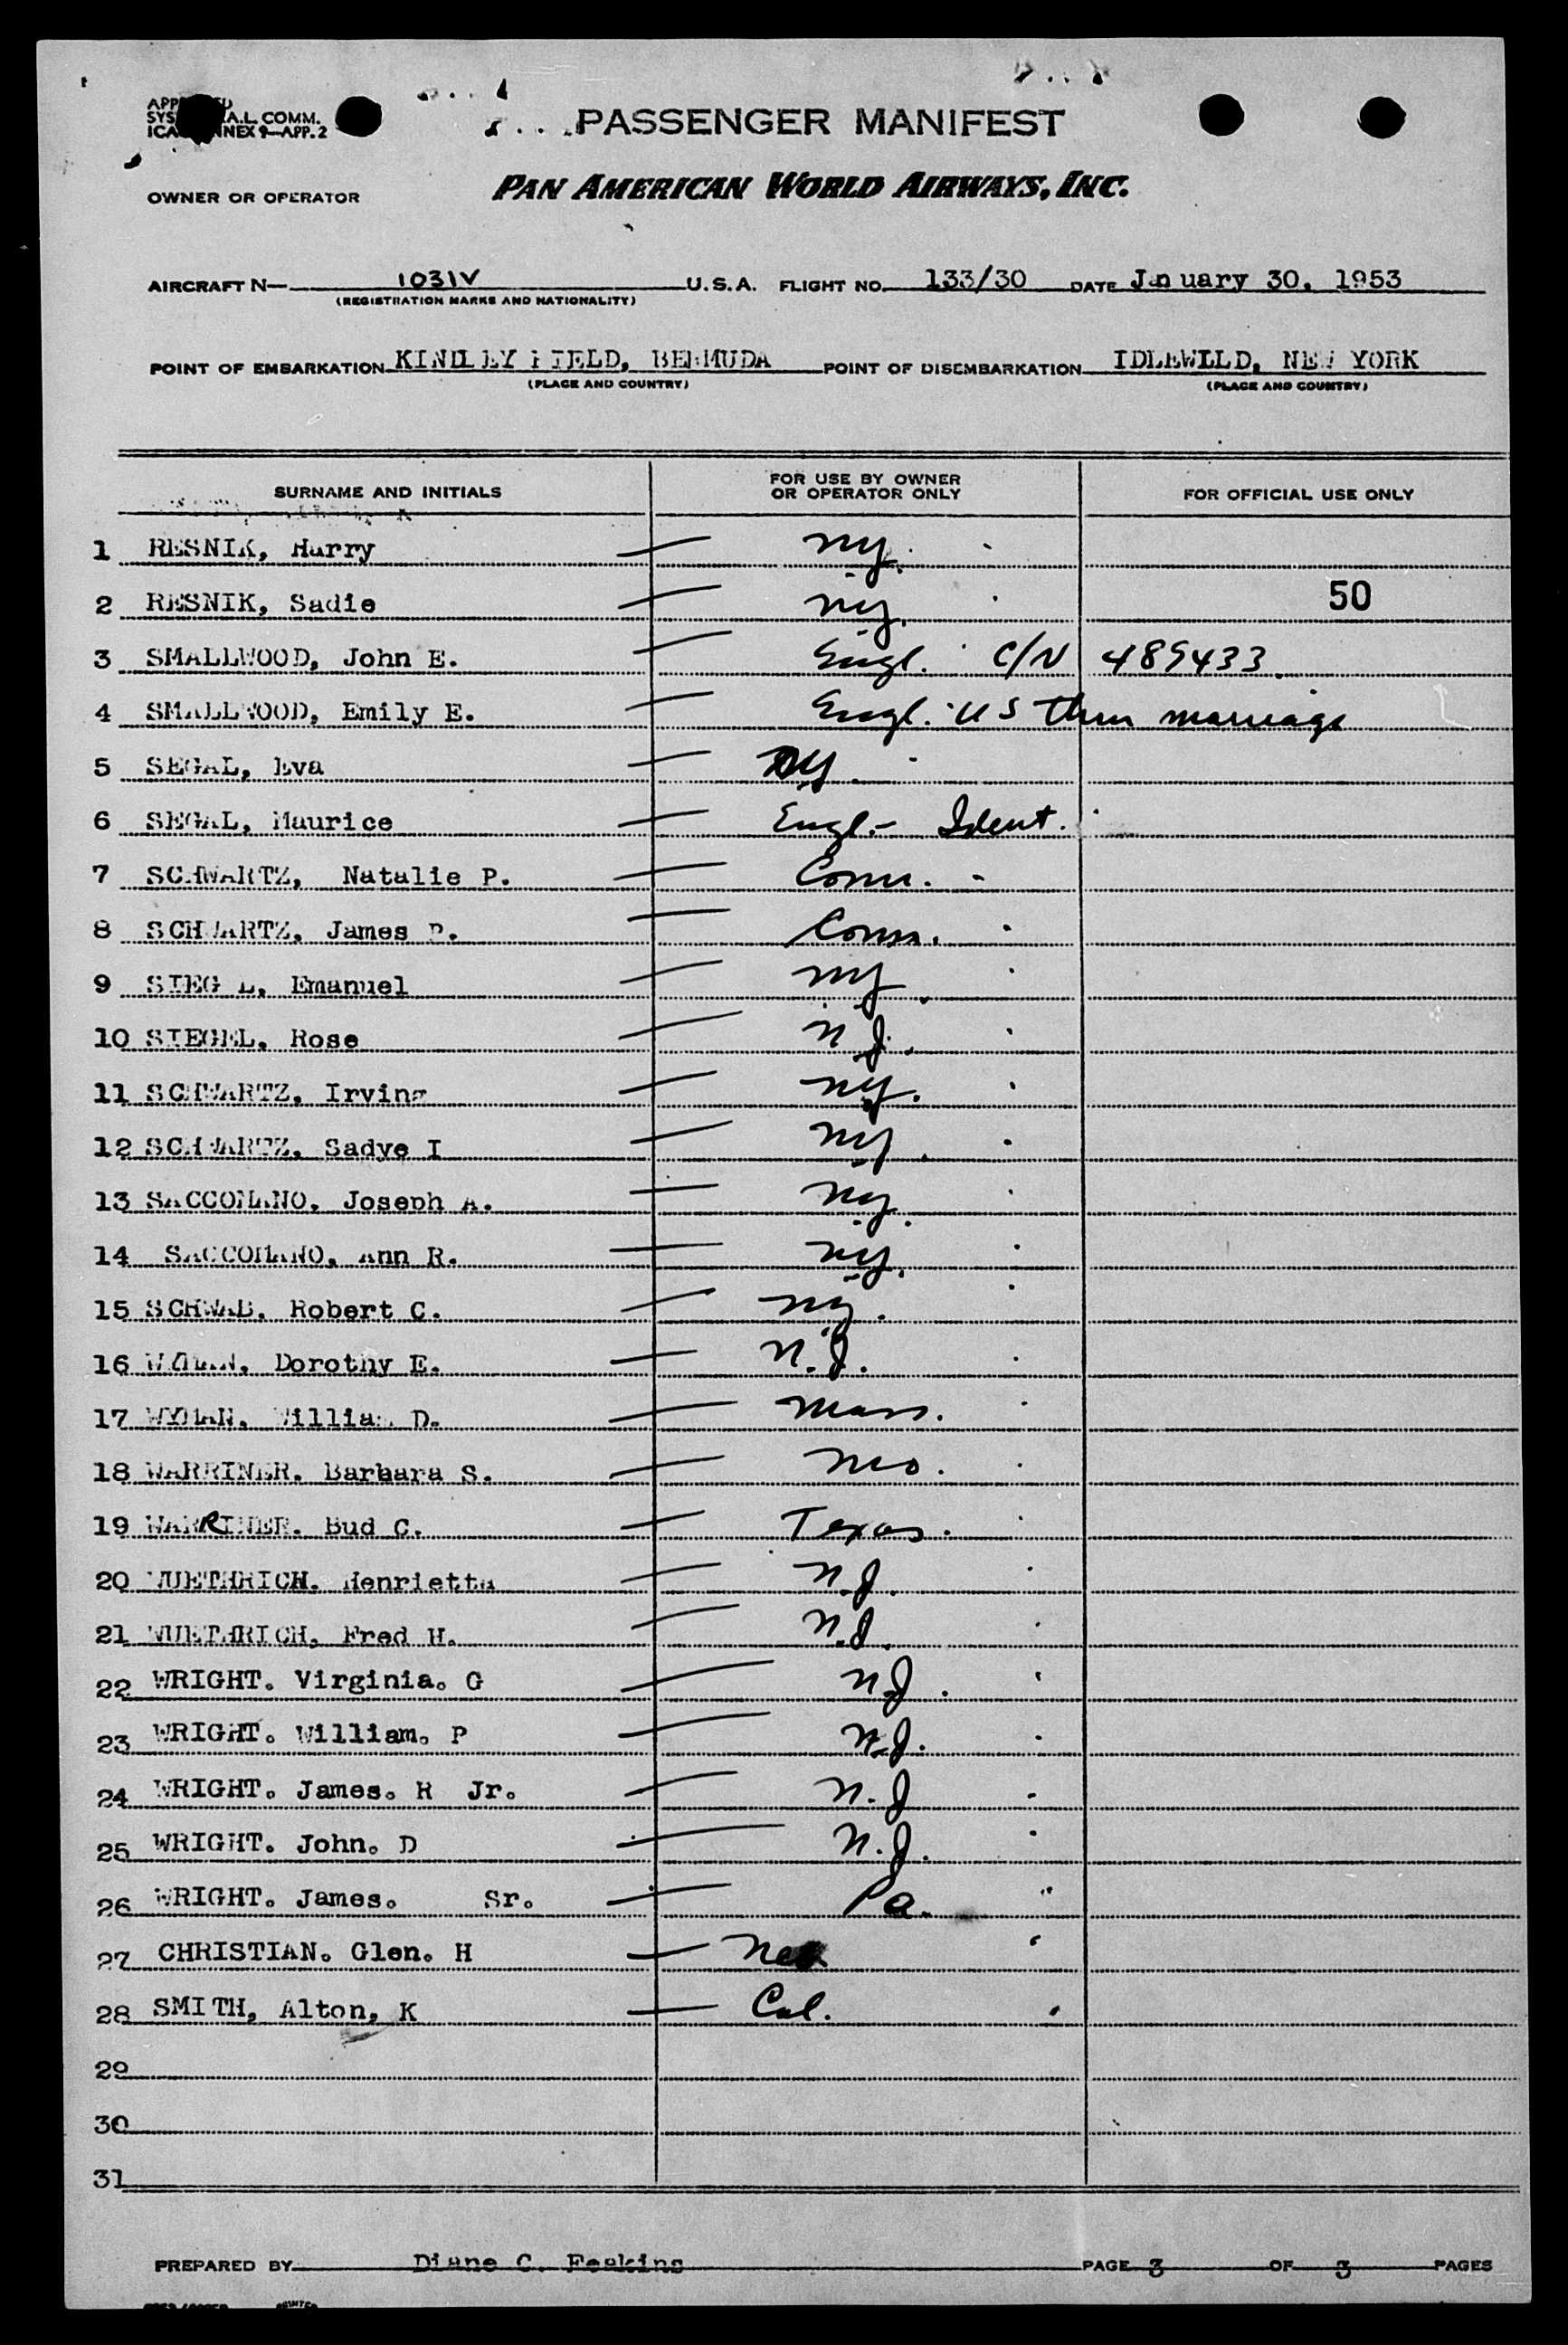 PASSENGER MANIFEST
A.L. COMM.
NNEX 9—APP. 2
OWNER OR OPERATOR PAN AMERICAN WORLD AIRWAYS, INC.
AIRCRAFT N— 1031V U.S.A. FLIGHT NO. 133/30 DATE January 30, 1953
(REGISTRATION MARKS AND NATIONALITY)
POINT OF EMBARKATION KINDLEY FIELD, BERMUDA POINT OF DISEMBARKATION IDLEWILD, NEW YORK
(PLACE AND COUNTRY) (PLACE AND COUNTRY)
SURNAME AND INITIALS FOR USE BY OWNER OR OPERATOR ONLY FOR OFFICIAL USE ONLY
1 RESNIK, Harry — NY.
2 RESNIK, Sadie — NY. 50
3 SMALLWOOD, John E. — Engl. C/N 489433
4 SMALLWOOD, Emily E. — Engl. US thru marriage
5 SEGAL, Eva — NY.
6 SEGAL, Maurice — Engl.- Ident.
7 SCHWARTZ, Natalie P. — Conn. -
8 SCHWARTZ, James P. — Conn.
9 SIEGEL, Emanuel — NY
10 SIEGEL, Rose — N.J.
11 SCHWARTZ, Irving — NY.
12 SCHWARTZ, Sadye I — NY.
13 SACCOMANO, Joseph A. — NY.
14 SACCOMANO, Ann R. — NY.
15 SCHWAB, Robert C. — NY.
16 WYMAN, Dorothy E. — N.J.
17 WYMAN, William D. — Mass.
18 WARRINER. Barbara S. — Mo.
19 WARRINER. Bud C. — Texas.
20 WUETHRICH. Henrietta — N.J.
21 WUETHRICH, Fred H. — N.J.
22 WRIGHT. Virginia. G — N.J.
23 WRIGHT. William. P — N.J.
24 WRIGHT. James. R Jr. — N.J
25 WRIGHT. John. D — N.J.
26 WRIGHT. James. Sr. — Pa.
27 CHRISTIAN. Glen. H —
28 SMITH, Alton, K — Cal.
29
30
31
PREPARED BY Diane C. Feakins PAGE 3 OF 3 PAGES